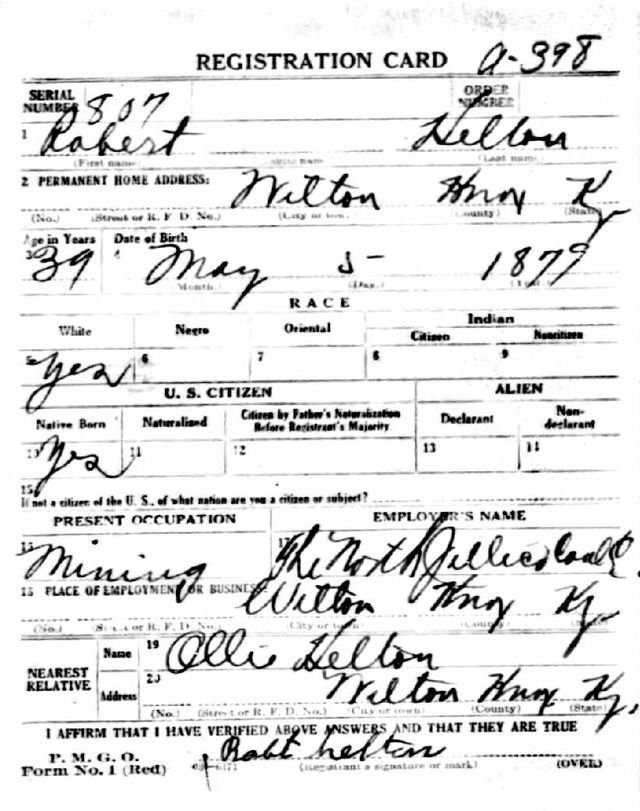 REGISTRATION CARD A-398
SERIAL NUMBER 807 ORDER NUMBER
1 Robert Helton
(First name) (Last name)
2 PERMANENT HOME ADDRESS: Wilton Knox Ky
(No.) (Street or R. F. D. No.) (City or town) (County) (State)
Age in Years Date of Birth
3 39 4 May 5- 1879
(Month.) (Day.) (Year.)
RACE
White Negro Oriental Indian
Citizen Noncitizen
5 Yes 6 7 8 9
U. S. CITIZEN ALIEN
Native Born Naturalized Citizen by Father's Naturalization Before Registrant's Majority Declarant Non-declarant
10 Yes 11 12 13 14
15
If not a citizen of the U. S., of what nation are you a citizen or subject?
PRESENT OCCUPATION EMPLOYER'S NAME
16 Mining 17 The North Jellico Coal C.
18 PLACE OF EMPLOYMENT OR BUSINESS: Wilton Knox Ky
(No.) (Street or R. F. D. No.) (City or town) (County) (State)
NEAREST RELATIVE Name 19 Ollie Helton
Address 20 Wilton Knox Ky.
(No.) (Street or R. F. D. No.) (City or town) (County) (State)
I AFFIRM THAT I HAVE VERIFIED ABOVE ANSWERS AND THAT THEY ARE TRUE
P. M. G. O.
Form No. 1 (Red) Robt helton
(Registrant's signature or mark) (OVER)